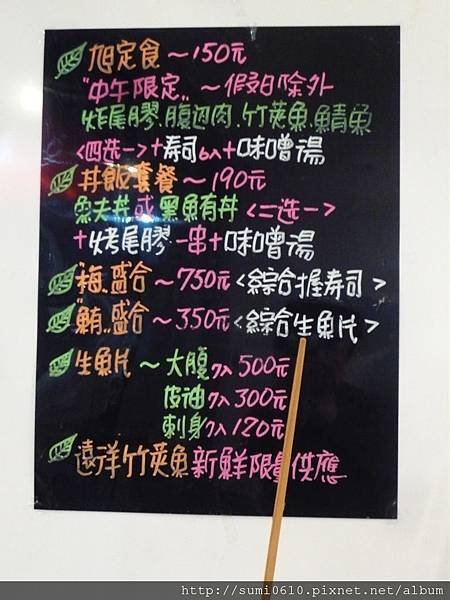 旭定食～150元
"中午限定"～假日除外
炸尾膠.腹迴肉.竹莢魚.鯖魚
<四选一>+壽司6入+味噌湯
丼飯套餐～190元
魚夫丼或黑鮪丼<二选一>
+烤尾膠一串+味噌湯
"梅"盛合～750元<綜合握寿司>
"鮪"盛合～350元<綜合生魚片>
生魚片～大腹7入500元
皮油7入300元
刺身7入120元
遠洋竹莢魚新鮮限量供應
http://sumi0610.pixnet.net/album